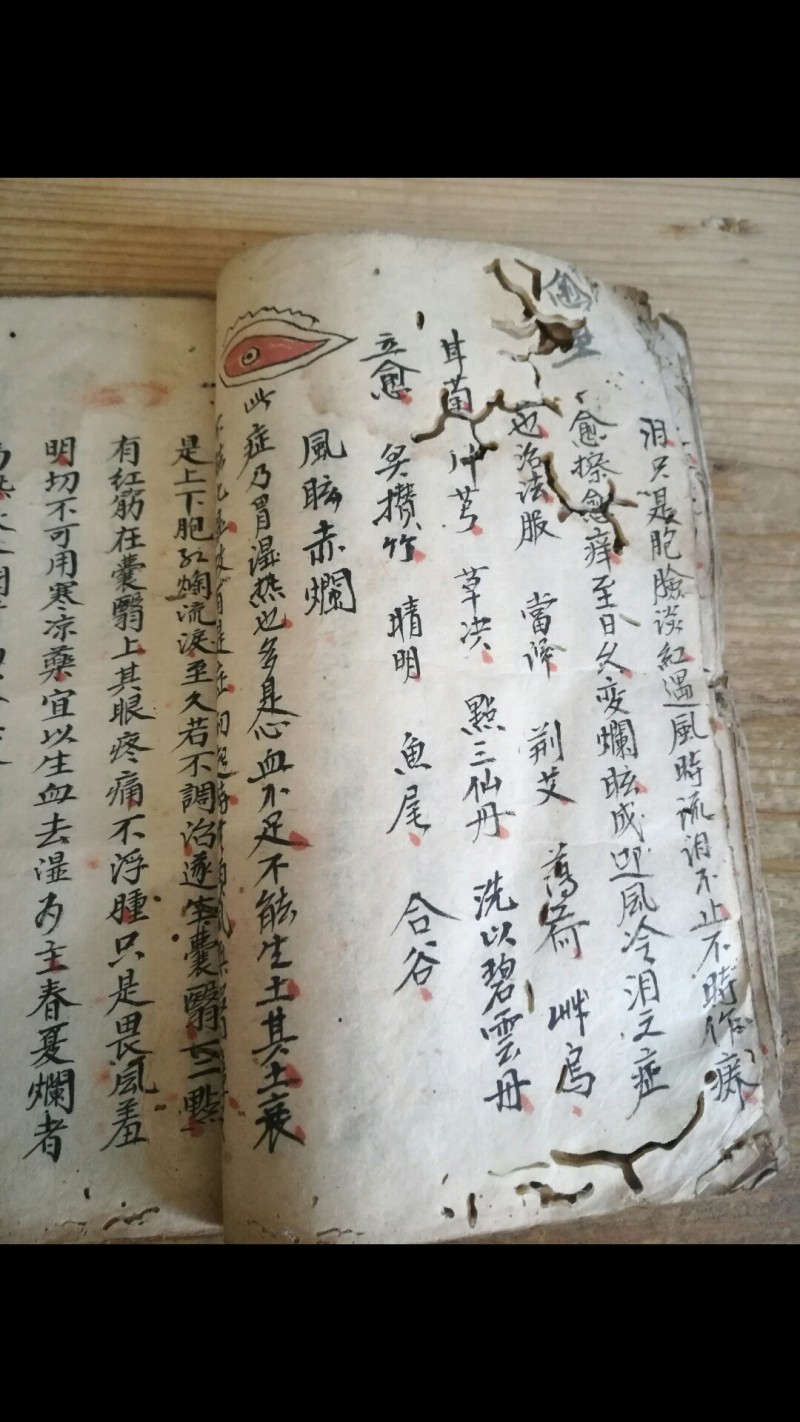 泪只是胞臉淡紅遇風時流泪不止不時作癢
愈擦愈痒至日久变爛眩成迎風冷泪之症
也治法服 當歸 荆艾 薄荷 艸烏
甘菊 川芎 草决 點三仙丹 洗以碧雲丹
立愈 灸攅竹 晴明 魚尾 合谷
風眩赤爛
此症乃胃濕热也多是心血不足不能生土其土衰
是上下胞红爛流淚至久若不調治遂生囊翳一二點
有红筋在囊翳上其眼疼痛不浮腫只是畏風羞
明切不可用寒凉藥宜以生血去湿为主春夏爛者